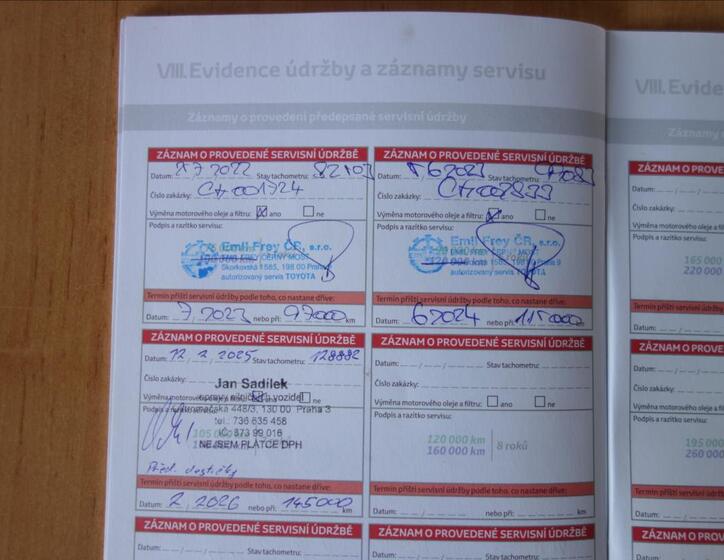 VIII. Evidence údržby a záznamy servisu
Záznamy o provedení předepsané servisní údržby
ZÁZNAM O PROVEDENÉ SERVISNÍ ÚDRŽBĚ
Datum: 7.2022 Stav tachometru: 82103
Číslo zakázky:
Výměna motorového oleje a filtru: ano ne
Podpis a razítko servisu:
Emil Frey ČR, s.r.o.
EMIL FREY ČERNÝ MOST
Skorkovská 1585, 198 00 Praha
autorizovaný servis TOYOTA
Termín příští servisní údržby podle toho, co nastane dříve:
Datum: 7.2023 nebo při: 97000 km
ZÁZNAM O PROVEDENÉ SERVISNÍ ÚDRŽBĚ
Datum: 6 2023 Stav tachometru:
Číslo zakázky:
Výměna motorového oleje a filtru: ano ne
Podpis a razítko servisu:
Emil Frey ČR, s.r.o.
EMIL FREY ČERNÝ MOST
Skorkovská 1585, 198 00 Praha 9
autorizovaný servis TOYOTA
120 000 km
Termín příští servisní údržby podle toho, co nastane dříve:
Datum: 6 2024 nebo při: 115000 km
ZÁZNAM O PROVEDENÉ SERVISNÍ ÚDRŽBĚ
Datum: 12.2.2025 Stav tachometru: 128882
Číslo zakázky:
Jan Sadílek
opravy silničních vozidel
Výměna motorového oleje a filtru:
Podpis a razítko servisu:
448/3, 130 00 Praha 3
tel.: 736 635 458
IČ: 873 99 016
NEJSEM PLÁTCE DPH
105 000
Před. destičky
Termín příští servisní údržby podle toho, co nastane dříve:
Datum: 2.2026 nebo při: 145000 km
ZÁZNAM O PROVEDENÉ SERVISNÍ ÚDRŽBĚ
Datum: Stav tachometru:
Číslo zakázky:
Výměna motorového oleje a filtru: ano ne
Podpis a razítko servisu:
120 000 km
160 000 km
8 roků
Termín příští servisní údržby podle toho, co nastane dříve:
Datum: nebo při: km
ZÁZNAM O PROVEDENÉ SERVISNÍ ÚDRŽBĚ
Datum: Stav tachometru:
ZÁZNAM O PROVEDENÉ SERVISNÍ ÚDRŽBĚ
Datum: Stav tachometru:
VIII. Evide
Záznamy
ZÁZNAM O PROV
Datum:
Číslo zakázky:
Výměna motorového
Podpis a razítko servisu
165 000
220 000
Termín příští servisní
Datum:
ZÁZNAM O PROV
Datum:
Číslo zakázky:
Výměna motorového
Podpis a razítko servisu
195 000
260 000
Termín příští servisní
Datum:
ZÁZNAM O PROV
Datum: